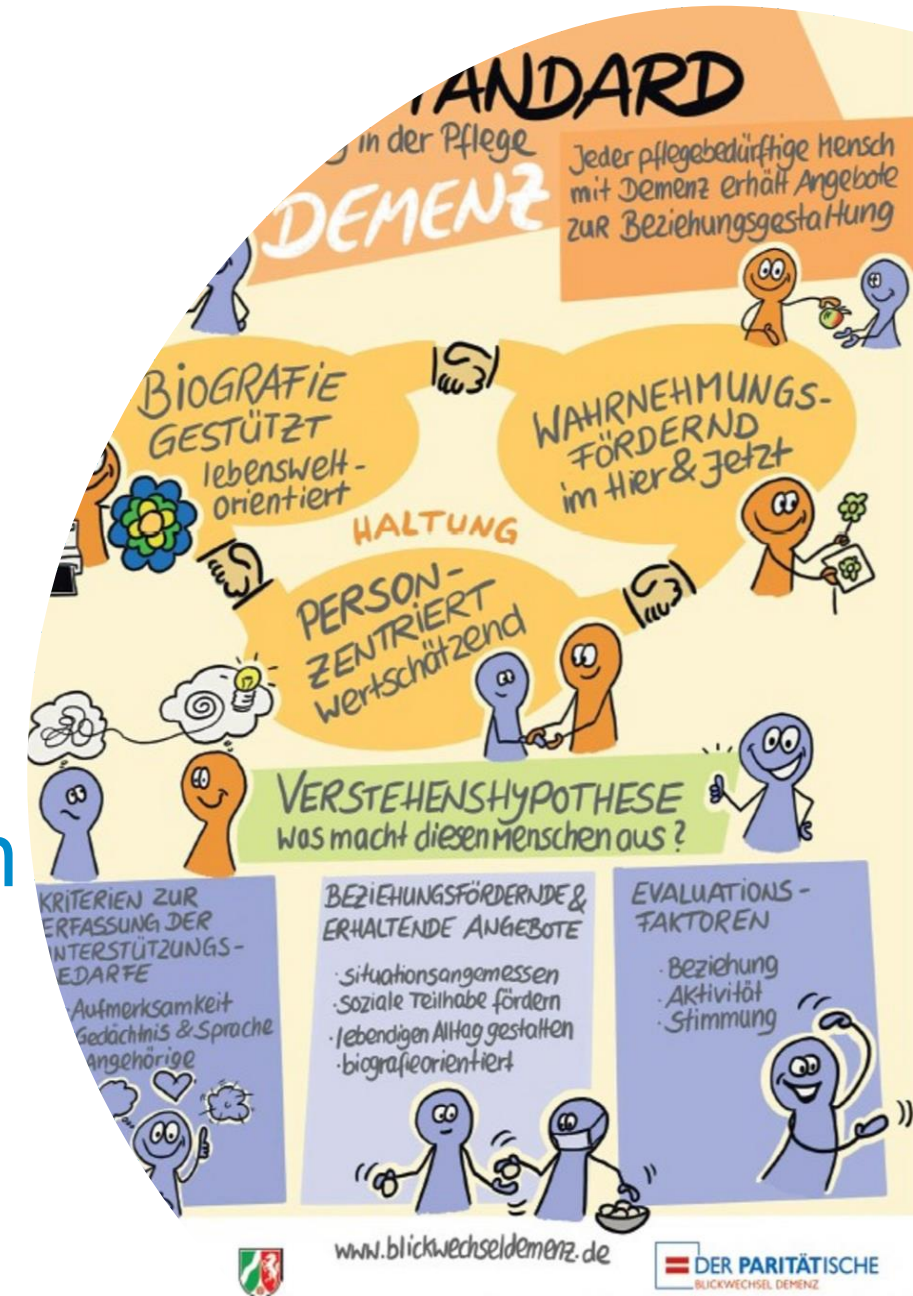 TANDARD
in der Pflege
DEMENZ
Jeder pflegebedürftige Mensch
mit Demenz erhält Angebote
zur Beziehungsgestaltung
BIOGRAFIE
GESTÜTZT
lebenswelt-
orientiert
WAHRNEHMUNGS-
FÖRDERND
im Hier & Jetzt
HALTUNG
PERSON-
ZENTRIERT
wertschätzend
VERSTEHENSHYPOTHESE
was macht diesen Menschen aus?
n
KRITERIEN ZUR
ERFASSUNG DER
NTERSTÜTZUNGS-
EDARFE
·Aufmerksamkeit
Gedächtnis & Sprache
Angehörige
BEZIEHUNGSFÖRDERNDE &
ERHALTENDE ANGEBOTE
·situationsangemessen
·soziale Teilhabe fördern
·lebendigen Alltag gestalten
·biografieorientiert
EVALUATIONS-
FAKTOREN
·Beziehung
·Aktivität
·Stimmung
www.blickwechseldemenz.de
DER PARITÄTISCHE
BLICKWECHSEL DEMENZ